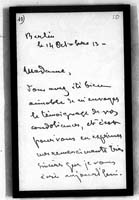 Berlin
le 14 Octobre 13 -
Madame,
Vous avez été bien
aimable de m'envoyer
le témoignage de vos
condoléances, et c'est
pour vous en exprimer
mes remerciements très
sincères que je vous
écris aujourd'hui.